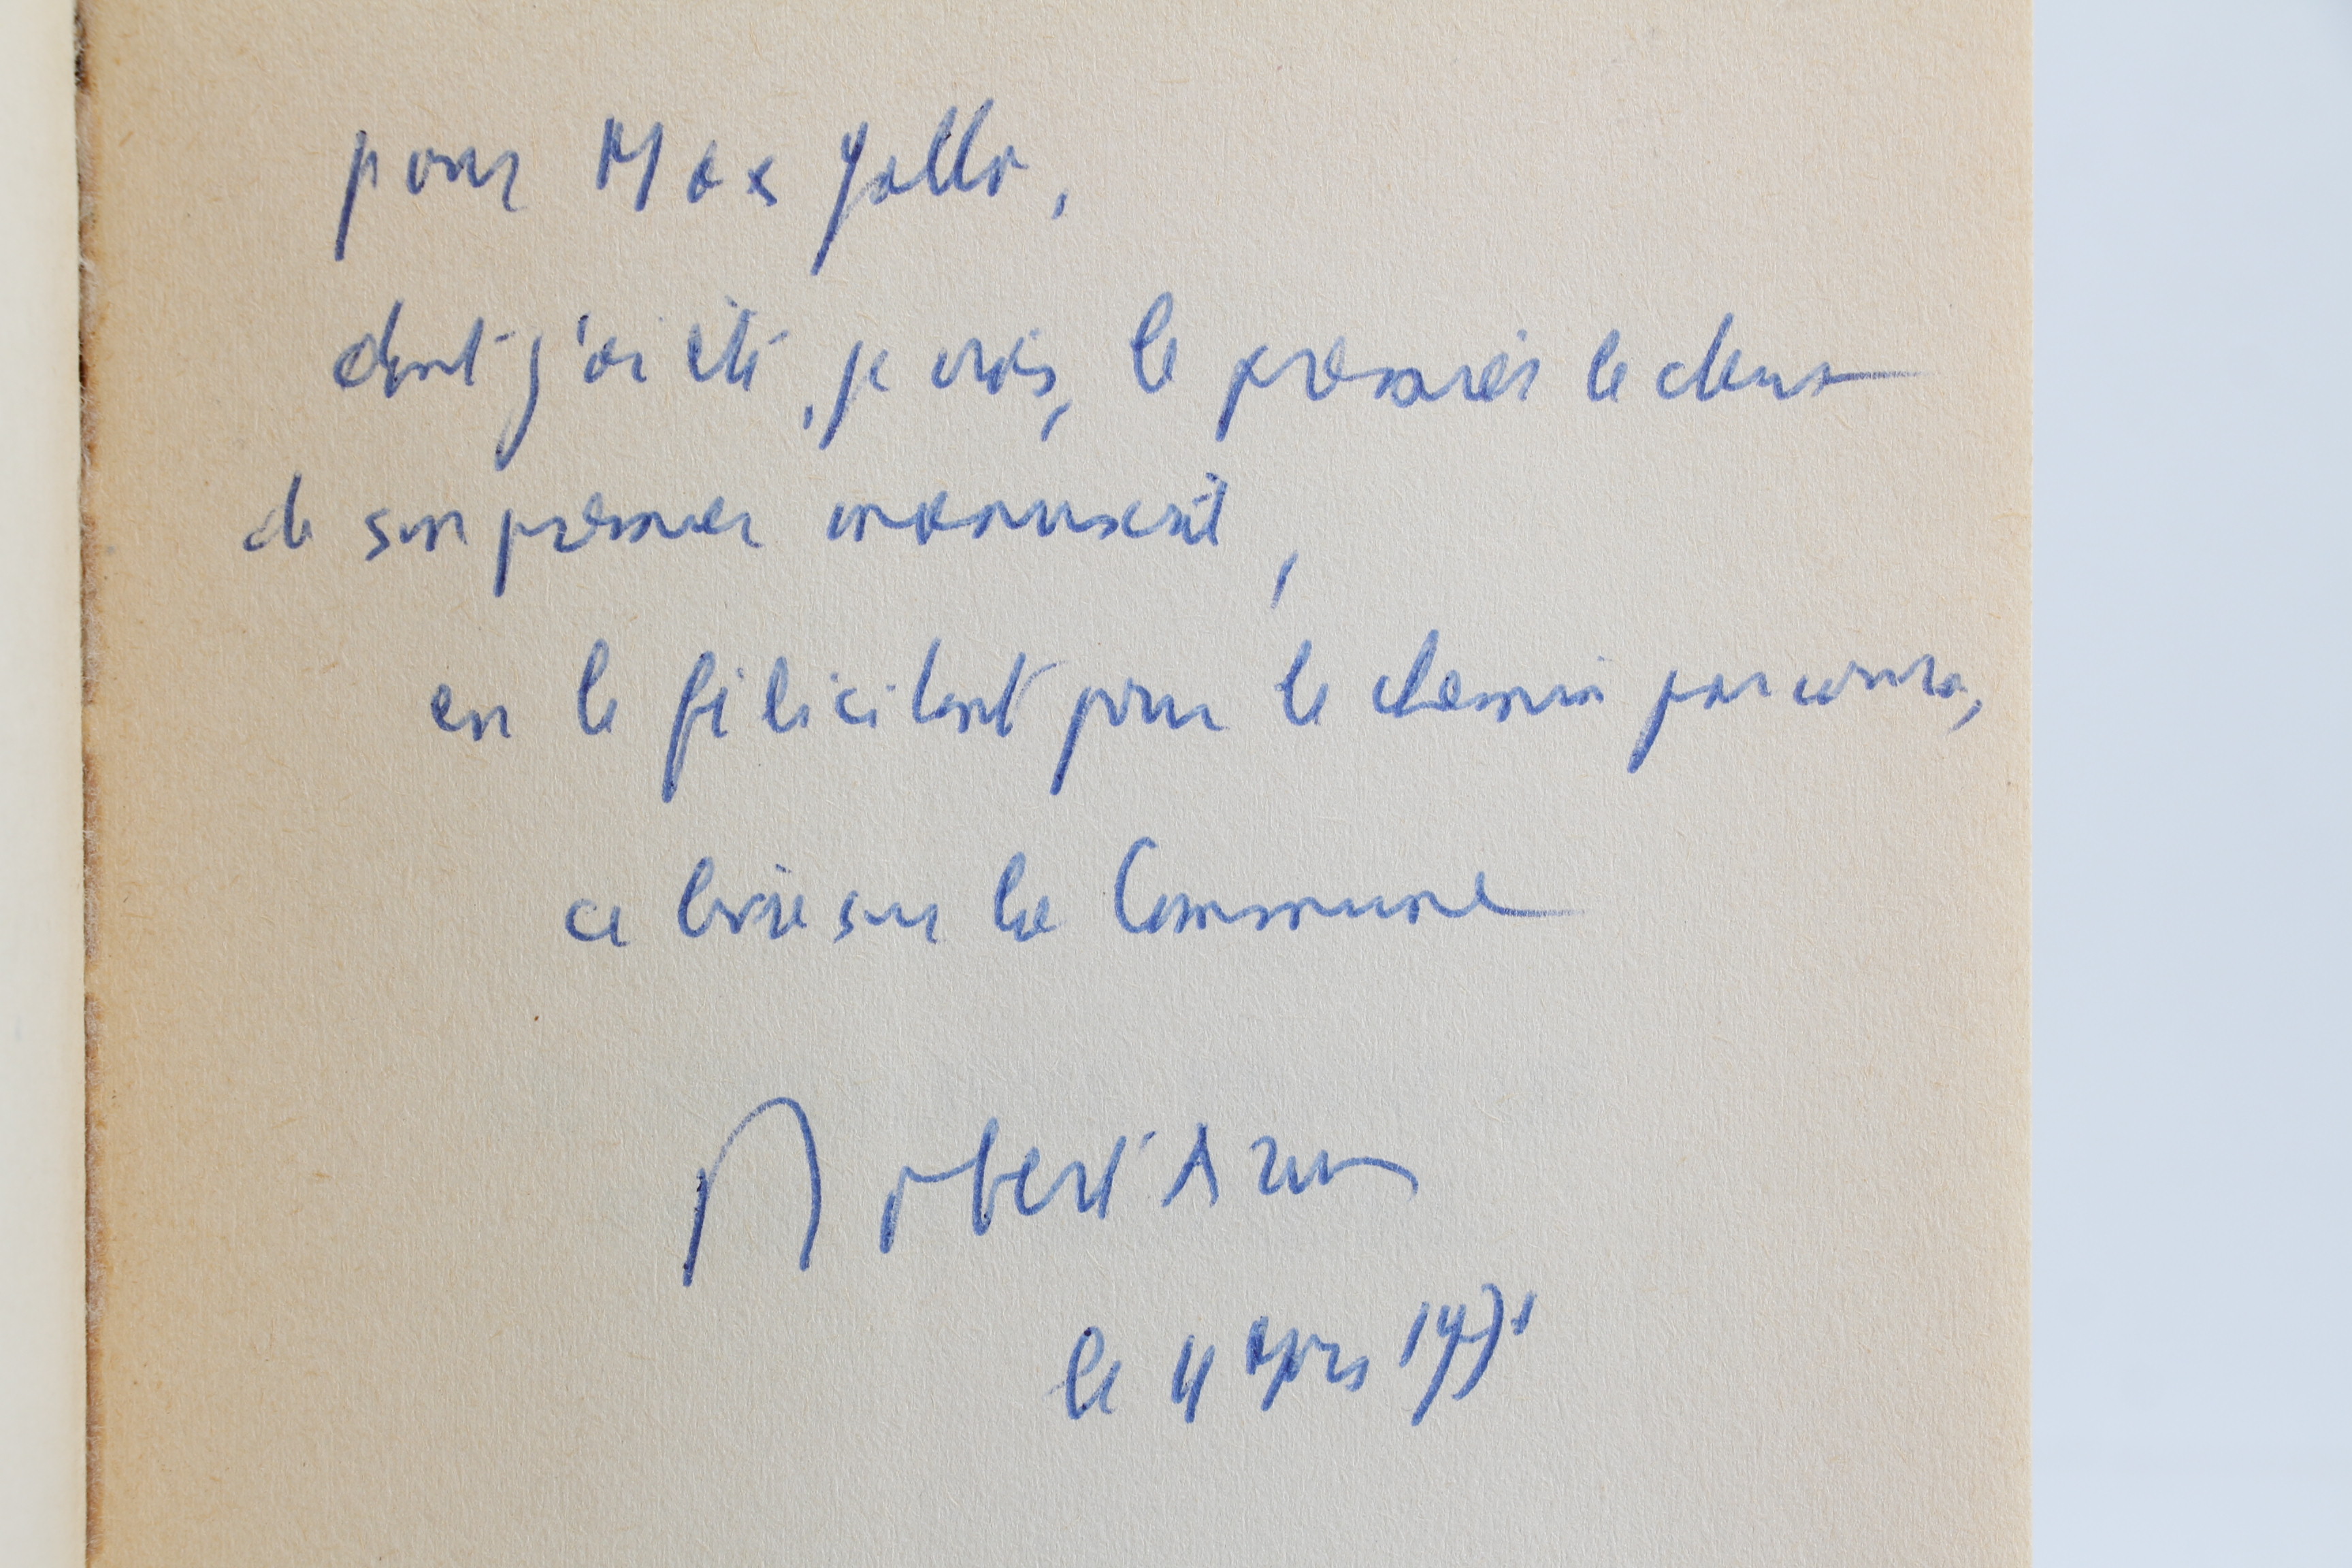 pour Max Gallo,
dont j'ai été, je crois, le premier lecteur
de son premier manuscrit,
en le félicitant pour le chemin parcouru,
ce livre sur la Commune
Robert Aron
le 4 mars 1971